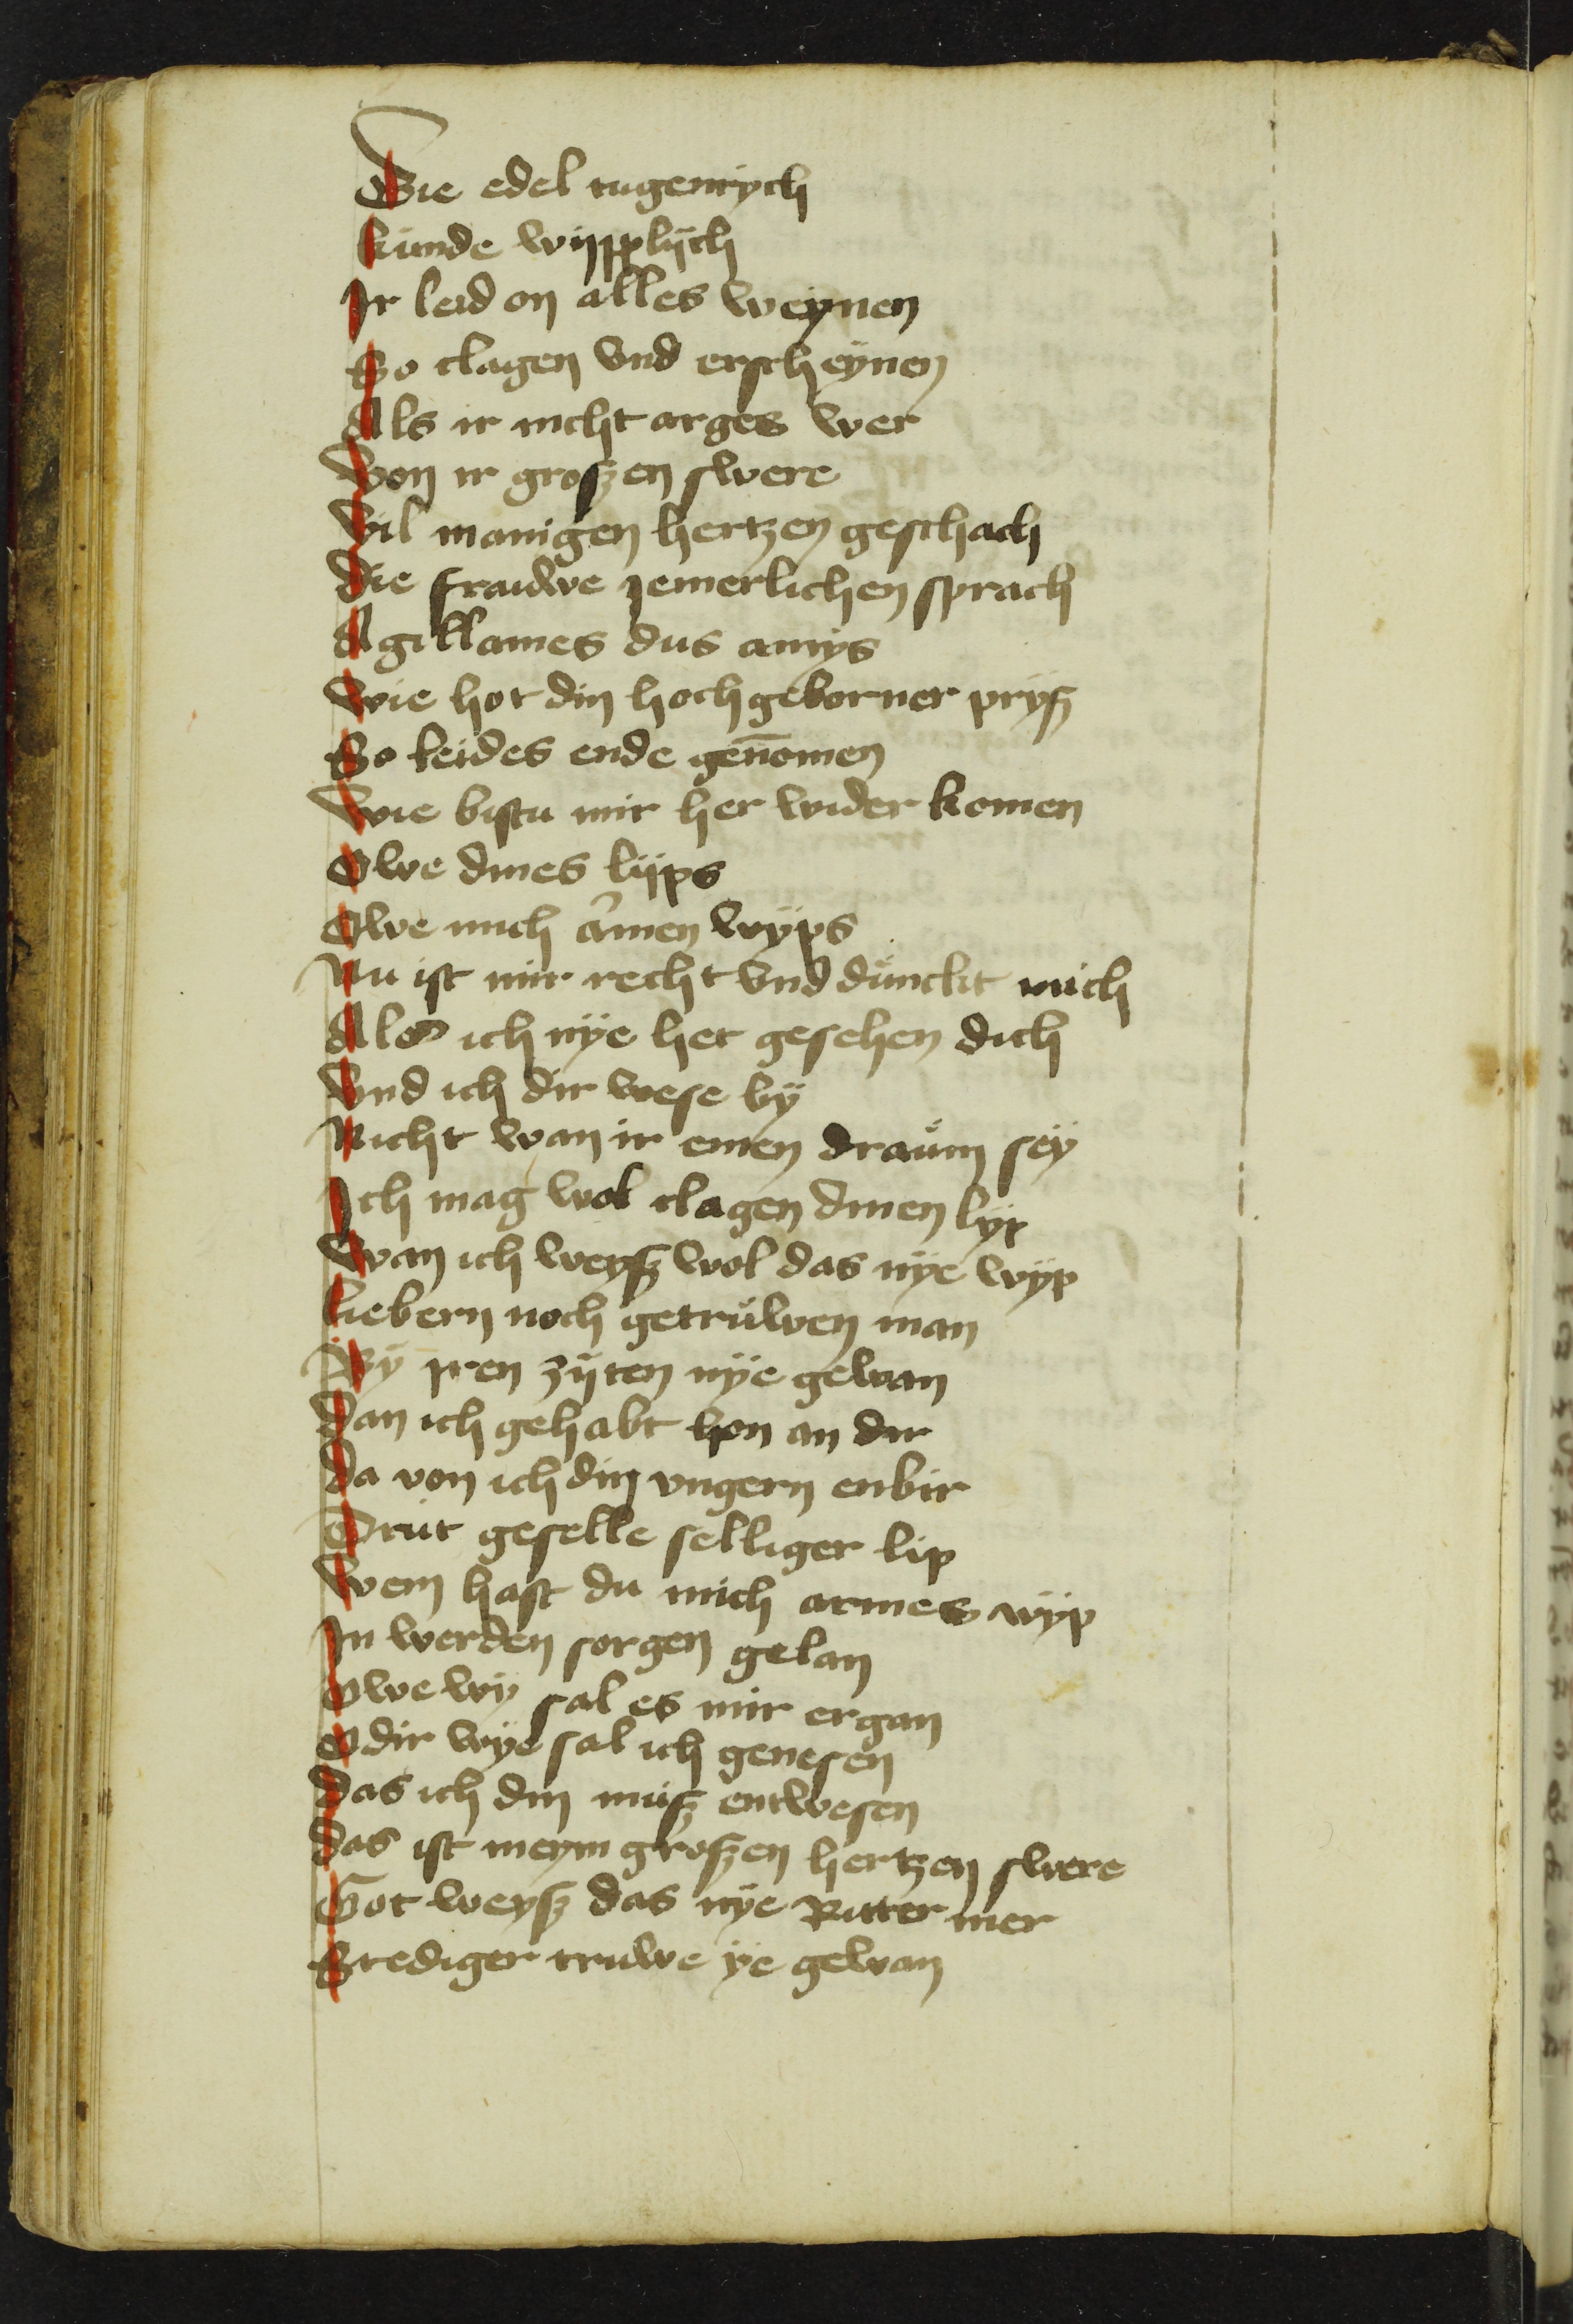 Die edel tugenrych
kunde wypplych
Ir leid on alles weynen
So clagen vnd erscheynen
Als ir nicht arges wer
Von ir groszen swere
Vil manigen hertzen geschach
Die frauwe jemerlichen sprach
Agillames dus amys
Wie hot din hochgeborner prysz
So leides ende genomen
Wie bistu mir her wider komen
Owe dines lyps
Owe mich armen wyps
Nu ist mir recht vnd dunckt mich
Als ich nye het gesehen dich
Vnd ich dir wese by
Nicht wan ir einen draum sey
Ich mag wol clagen dinen lyp
Wan ich weysz wol das nye wyp
liebern noch getruwen man
By iren zyten nye gewan
Dan ich gehabt hon an dir
Da von ich din vngern enbir
Drut geselle selliger lip
Wem hast du mich armes wyp
In werden sorgen gelan
Owe wy sal es mir ergan
Odir wye sal ich genesen
Das ich din musz entwesen
Das ist meym groszen hertzen swere
Got weysz das nye Ritter mer
Stediger truwe ye gewan